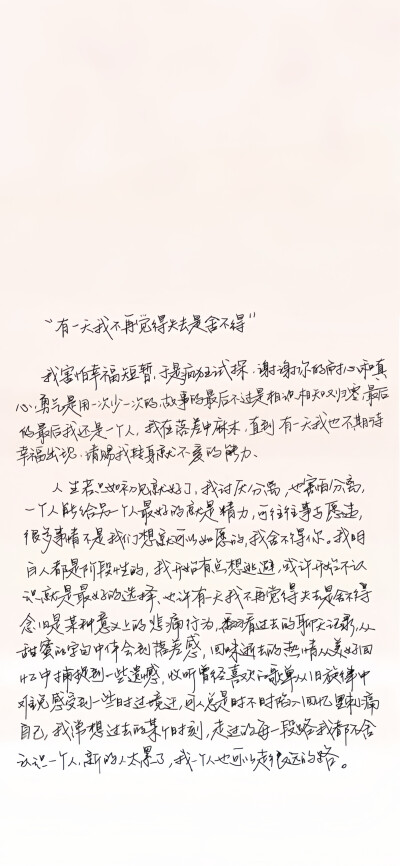 “有一天我不再觉得失去是舍不得”
我害怕幸福短暂,于是病态试探,谢谢你的耐心和真
心,勇气是用一次少一次的,故事的最后不过是相识相知又归零,最后
的最后我还是一个人,我在落差中麻木,直到有一天我也不期待
幸福出现,请赐我转身就不爱的能力、
人生若只如初见就好了,我讨厌分离,也害怕分离,
一个人能给另一个人最好的就是精力,可往往事与愿违,
很多事情不是我们想就可以如愿的,我舍不得你。我明
白人都是阶段性的,我开始有点想逃避,或许开始不认
识就是最好的选择,也许有天我不再觉得失去是舍不得
念旧是某种意义上的悲痛行为,翻看过去的聊天记录,从
甜蜜的字句中体会到落差感,回味逝去的热情从美好回
忆中捕捉到一些遗憾,收听曾经喜欢的歌单从旧旋律中
难免感受到一些时过境迁,回人总是时不时的回忆里刺痛
自己,我常想过去的某个时刻,走过的每一段路我都不舍
认识一个人,新的人太累了,我一个人也可以走很远的路。